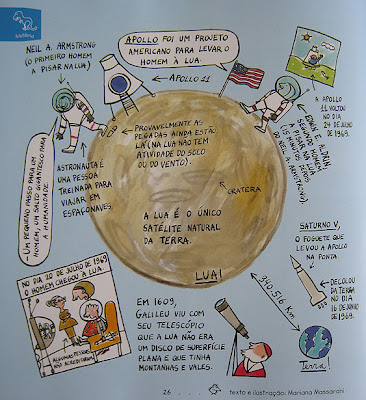 NEIL A. ARMSTRONG
(O PRIMEIRO HOMEM
A PISAR NA LUA)
APOLLO FOI UM PROJETO
AMERICANO PARA LEVAR O
HOMEM À LUA.
APOLLO 11
A APOLLO
11 VOLTOU
NO DIA
24 DE JULHO
DE 1969.
EDWIN E. ALDRIN
SEGUNDO HOMEM
A PISAR NA LUA
(15 MINUTOS DEPOIS
DO NEIL A. ARMSTRONG).
PROVAVELMENTE AS
PEGADAS AINDA ESTÃO
LÁ (NA LUA NÃO TEM
ATIVIDADE DO SOLO
OU DO VENTO).
UM PEQUENO PASSO PARA UM
HOMEM, UM SALTO GIGANTESCO PARA
A HUMANIDADE.
ASTRONAUTA É
UMA PESSOA
TREINADA PARA
VIAJAR EM
ESPAÇONAVES.
CRATERA
A LUA É O ÚNICO
SATÉLITE NATURAL
DA TERRA.
LUA!
SATURNO V,
O FOGUETE QUE
LEVOU A APOLLO
NA PONTA.
DECOLOU
DA TERRA
NO DIA
16 DE JULHO
DE 1969.
340.516 Km
Terra!
NO DIA 20 DE JULHO DE 1969
O HOMEM CHEGOU À LUA.
ALGUMAS PESSOAS
NÃO ACREDITARAM
EM 1609,
GALILEU VIU COM
SEU TELESCÓPIO
QUE A LUA NÃO ERA
UM DISCO DE SUPERFÍCIE
PLANA E QUE TINHA
MONTANHAS E VALES.
26
texto e ilustração: Mariana Massarani